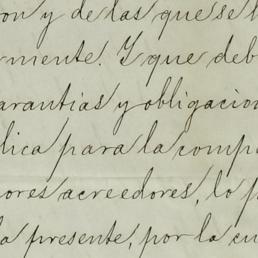 on y de las que se h
rmente. Y que deb
arantias y obligacio
lica para la comp
ores acreedores, lo p
a presente, por la cu